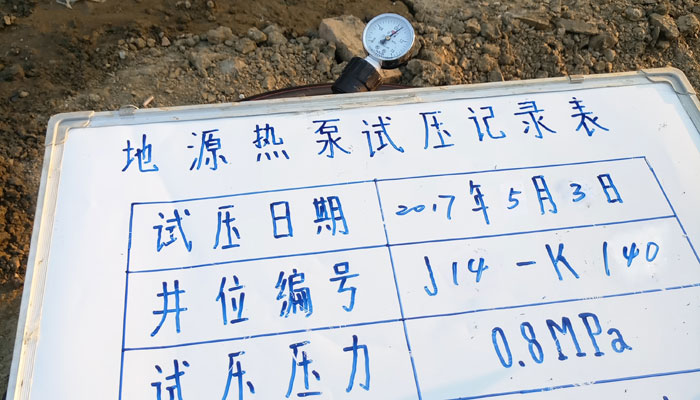 地源热泵试压记录表
试压日期 2017年5月3日
井位编号 J14-K140
试压压力 0.8MPa